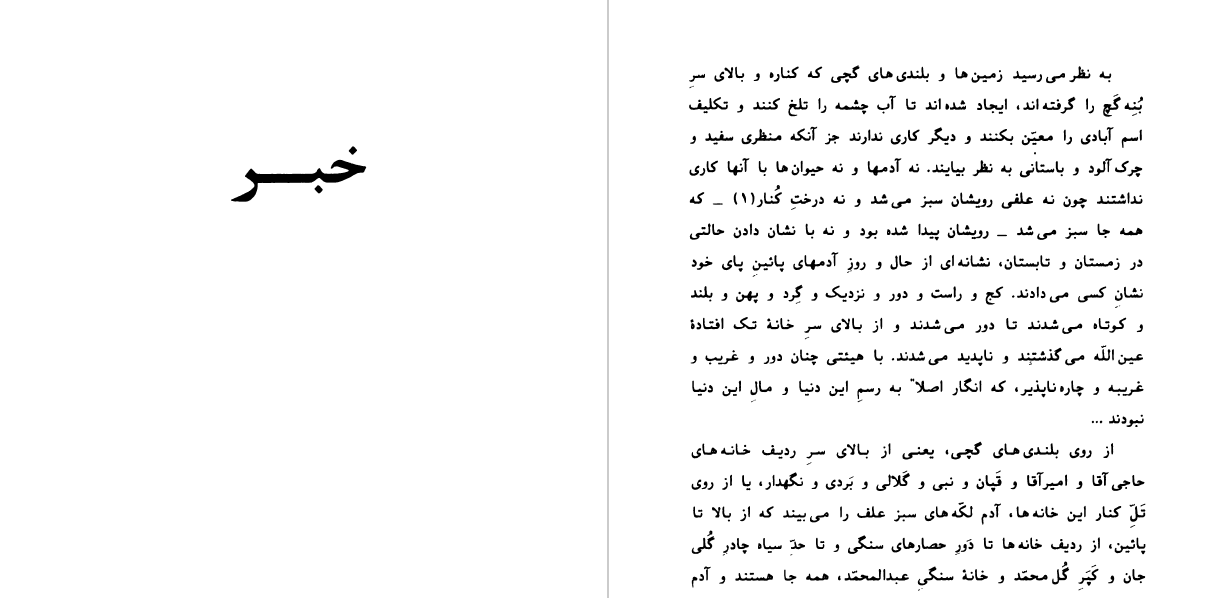 خبر
به نظر می‌رسید زمین‌ها و بلندی‌های گچی که کناره و بالای سرِ
بُنِه گَچ را گرفته‌اند، ایجاد شده‌اند تا آب چشمه را تلخ کنند و تکلیف
اسم آبادی را معیّن بکنند و دیگر کاری ندارند جز آنکه منظری سفید و
چرک‌آلود و باستانی به نظر بیایند. نه آدمها و نه حیوان‌ها با آنها کاری
نداشتند چون نه علفی رویشان سبز می‌شد و نه درختِ کُنار(۱) _ که
همه جا سبز می‌شد _ رویشان پیدا شده بود و نه با نشان دادن حالتی
در زمستان و تابستان، نشانه‌ای از حال و روزِ آدمهای پائینِ پای خود
نشانِ کسی می‌دادند. کج و راست و دور و نزدیک و گِرد و پهن و بلند
و کوتاه می‌شدند تا دور می‌شدند و از بالای سرِ خانهٔ تک افتادهٔ
عین‌اللّه می‌گذشتند و ناپدید می‌شدند. با هیئتی چنان دور و غریب و
غریبه و چاره‌ناپذیر، که انگار اصلاً به رسمِ این دنیا و مالِ این دنیا
نبودند ...
از روی بلندی‌های گچی، یعنی از بالای سرِ ردیف خانه‌های
حاجی‌آقا و امیرآقا و قَپان و نبی و گَلالی و بَردی و نگهدار، یا از روی
تَلِّ کنار این خانه‌ها، آدم لکّه‌های سبز علف را می‌بیند که از بالا تا
پائین، از ردیف خانه‌ها تا دَورِ حصارهای سنگی و تا حدّ سیاه چادرِ گُلی
جان و کَپَرِ گُل‌محمّد و خانهٔ سنگیِ عبدالمحمّد، همه جا هستند و آدم